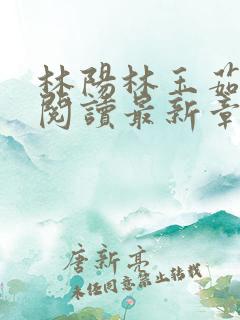 林陽林玉茹
閱讀最新章
唐新亮
未任同意禁止转载